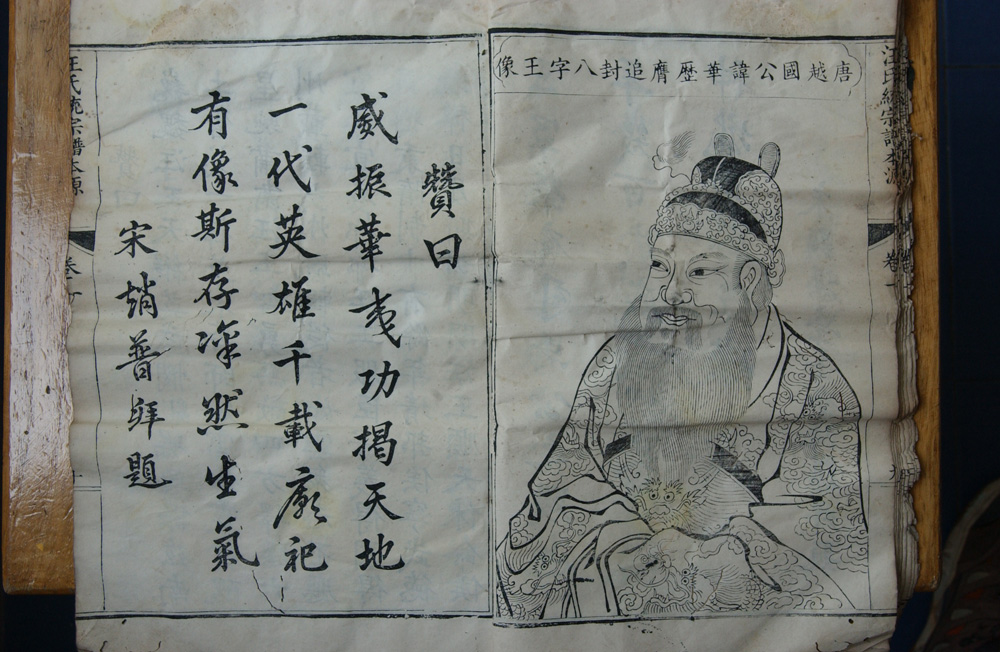 唐越國公諱華歷膺追封八字王像
汪氏統宗譜本源
卷一
贊曰
威振華夷功揭天地
一代英雄千載廟祀
有像斯存凛然生氣
宋趙普拜題
汪氏統宗譜本源
卷一